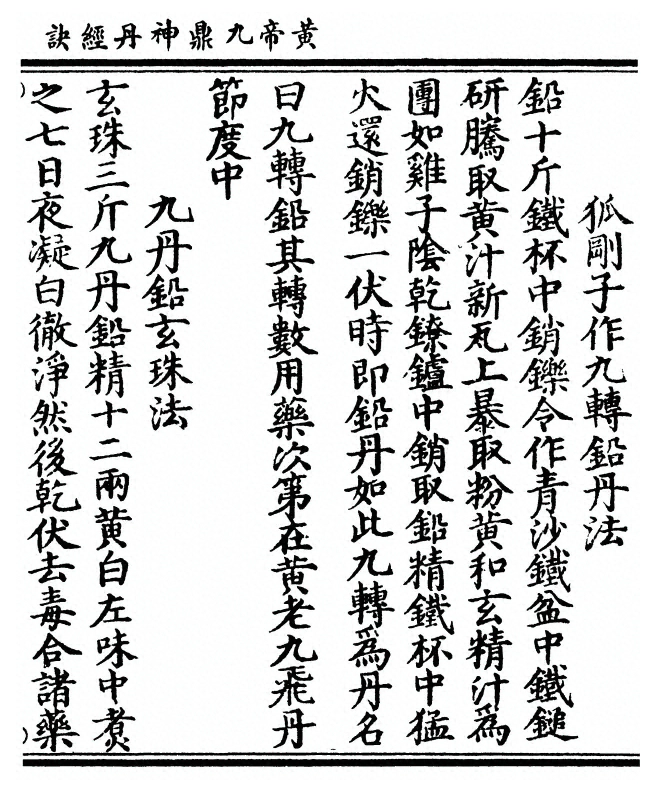 黃帝九鼎神丹經訣
狐剛子作九轉鉛丹法
鉛十斤鐵杯中銷鑠令作青沙鐵盆中鐵鎚
研騰取黃汁新瓦上暴取粉黃和玄精汁爲
團如雞子陰乾鐐鑪中銷取鉛精鐵杯中猛
火還銷鑠一伏時即鉛丹如此九轉爲丹名
曰九轉鉛其轉數用藥次第在黃老九飛丹
節度中
九丹鉛玄珠法
玄珠三斤九丹鉛精十二兩黃白左味中煑
之七日夜凝白徹淨然後乾伏去毒合諸藥